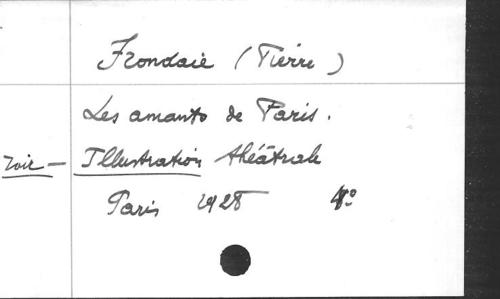 Frondaie (Pierre)
Les amants de Paris.
voir — Illustration théâtrale
Paris 1928 4º